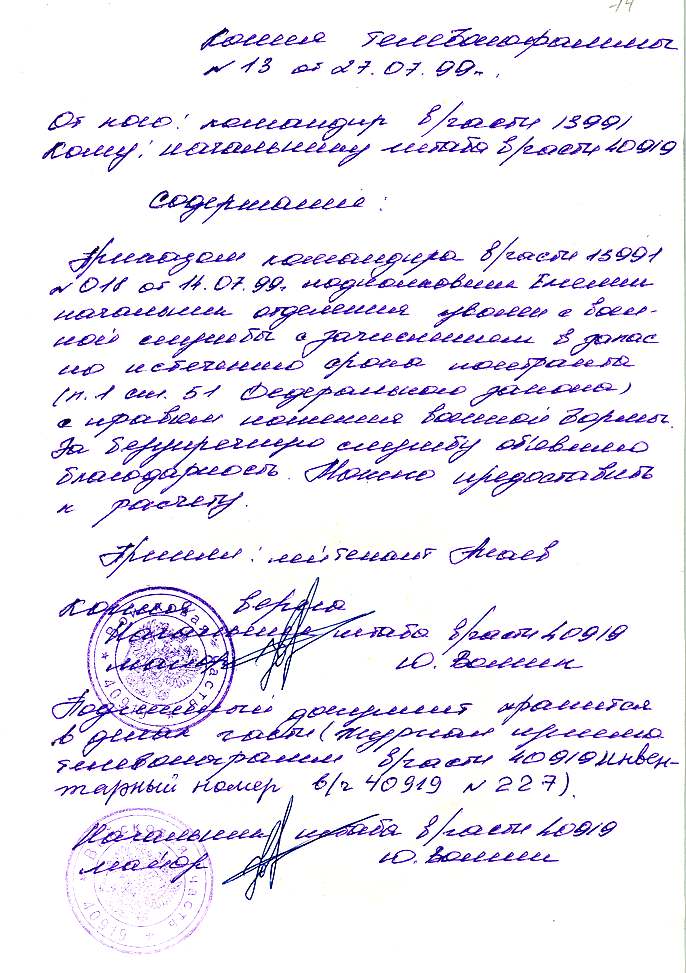 14
Копия телефонограммы
№ 13 от 27.07.99г.
От кого: командир в/части 13991
Кому: начальнику штаба в/части 40919
Содержание:
Приказом командира в/части 13991
№ 018 от 14.07.99г. подполковник
начальник отделения уволен с воен-
ной службы с зачислением в запас
по истечению срока контракта
(п.1 ст. 51 Федерального закона)
с правом ношения военной формы.
За безупречную службу объявлено
благодарность. Можно предоставить
к расчету.
Принял: лейтенант
Копия верна
Начальник штаба в/части 40919
майор Ю. Фомин
Подлинный документ хранится
в делах части (журнал приема
телефонограмм в/части 40919 инвен-
тарный номер в/ч 40919 № 227).
Начальник штаба в/части 40919
майор Ю. Фомин
Войсковая часть 40919